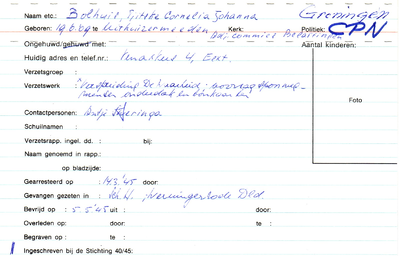 Naam etc.: Bolhuis, Tjitske Cornelia Johanna Groningen
Geboren: 19.8.'09 te Uithuizermeeden Kerk: Politiek: CPN
Adj. commies Belastingen
Ongehuwd/gehuwd met: Aantal kinderen:
Huidig adres en telef.nr.: 4, Eext.
Verzetsgroep :
Verzetswerk : Verspreiding De Waarheid,
onderdak en bonkaarten
Foto
Contactpersonen: Antje
Schuilnamen :
Verzetsrapp. ingel. dd. : bij:
Naam genoemd in rapp.:
op bladzijde:
Gearresteerd op : 14.3.'45 door:
Gevangen gezeten in : Sch.H., Dld.
Bevrijd op : 5.5.'45 uit : door:
Overleden op: : te : door:
Begraven op : : te :
Ingeschreven bij de Stichting 40/45: